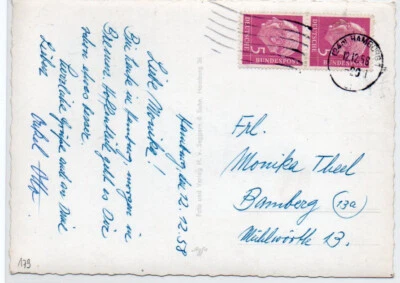 Hamburg, den 12.12.58
Liebe Monika!
Bin heute in Hamburg, morgen in
Bremen. Hoffentlich geht es Dir
Herzliche Grüße auch an Deine
Lieben
Foto und Verlag H. v. Seggern & Sohn, Hamburg
DEUTSCHE
BUNDESPOST
5
DEUTSCHE
BUNDESPOST
5
HAMBURG
12.12.58
Frl.
Monika Theel
Bamberg (13a)
Mühlwörth 13.
179